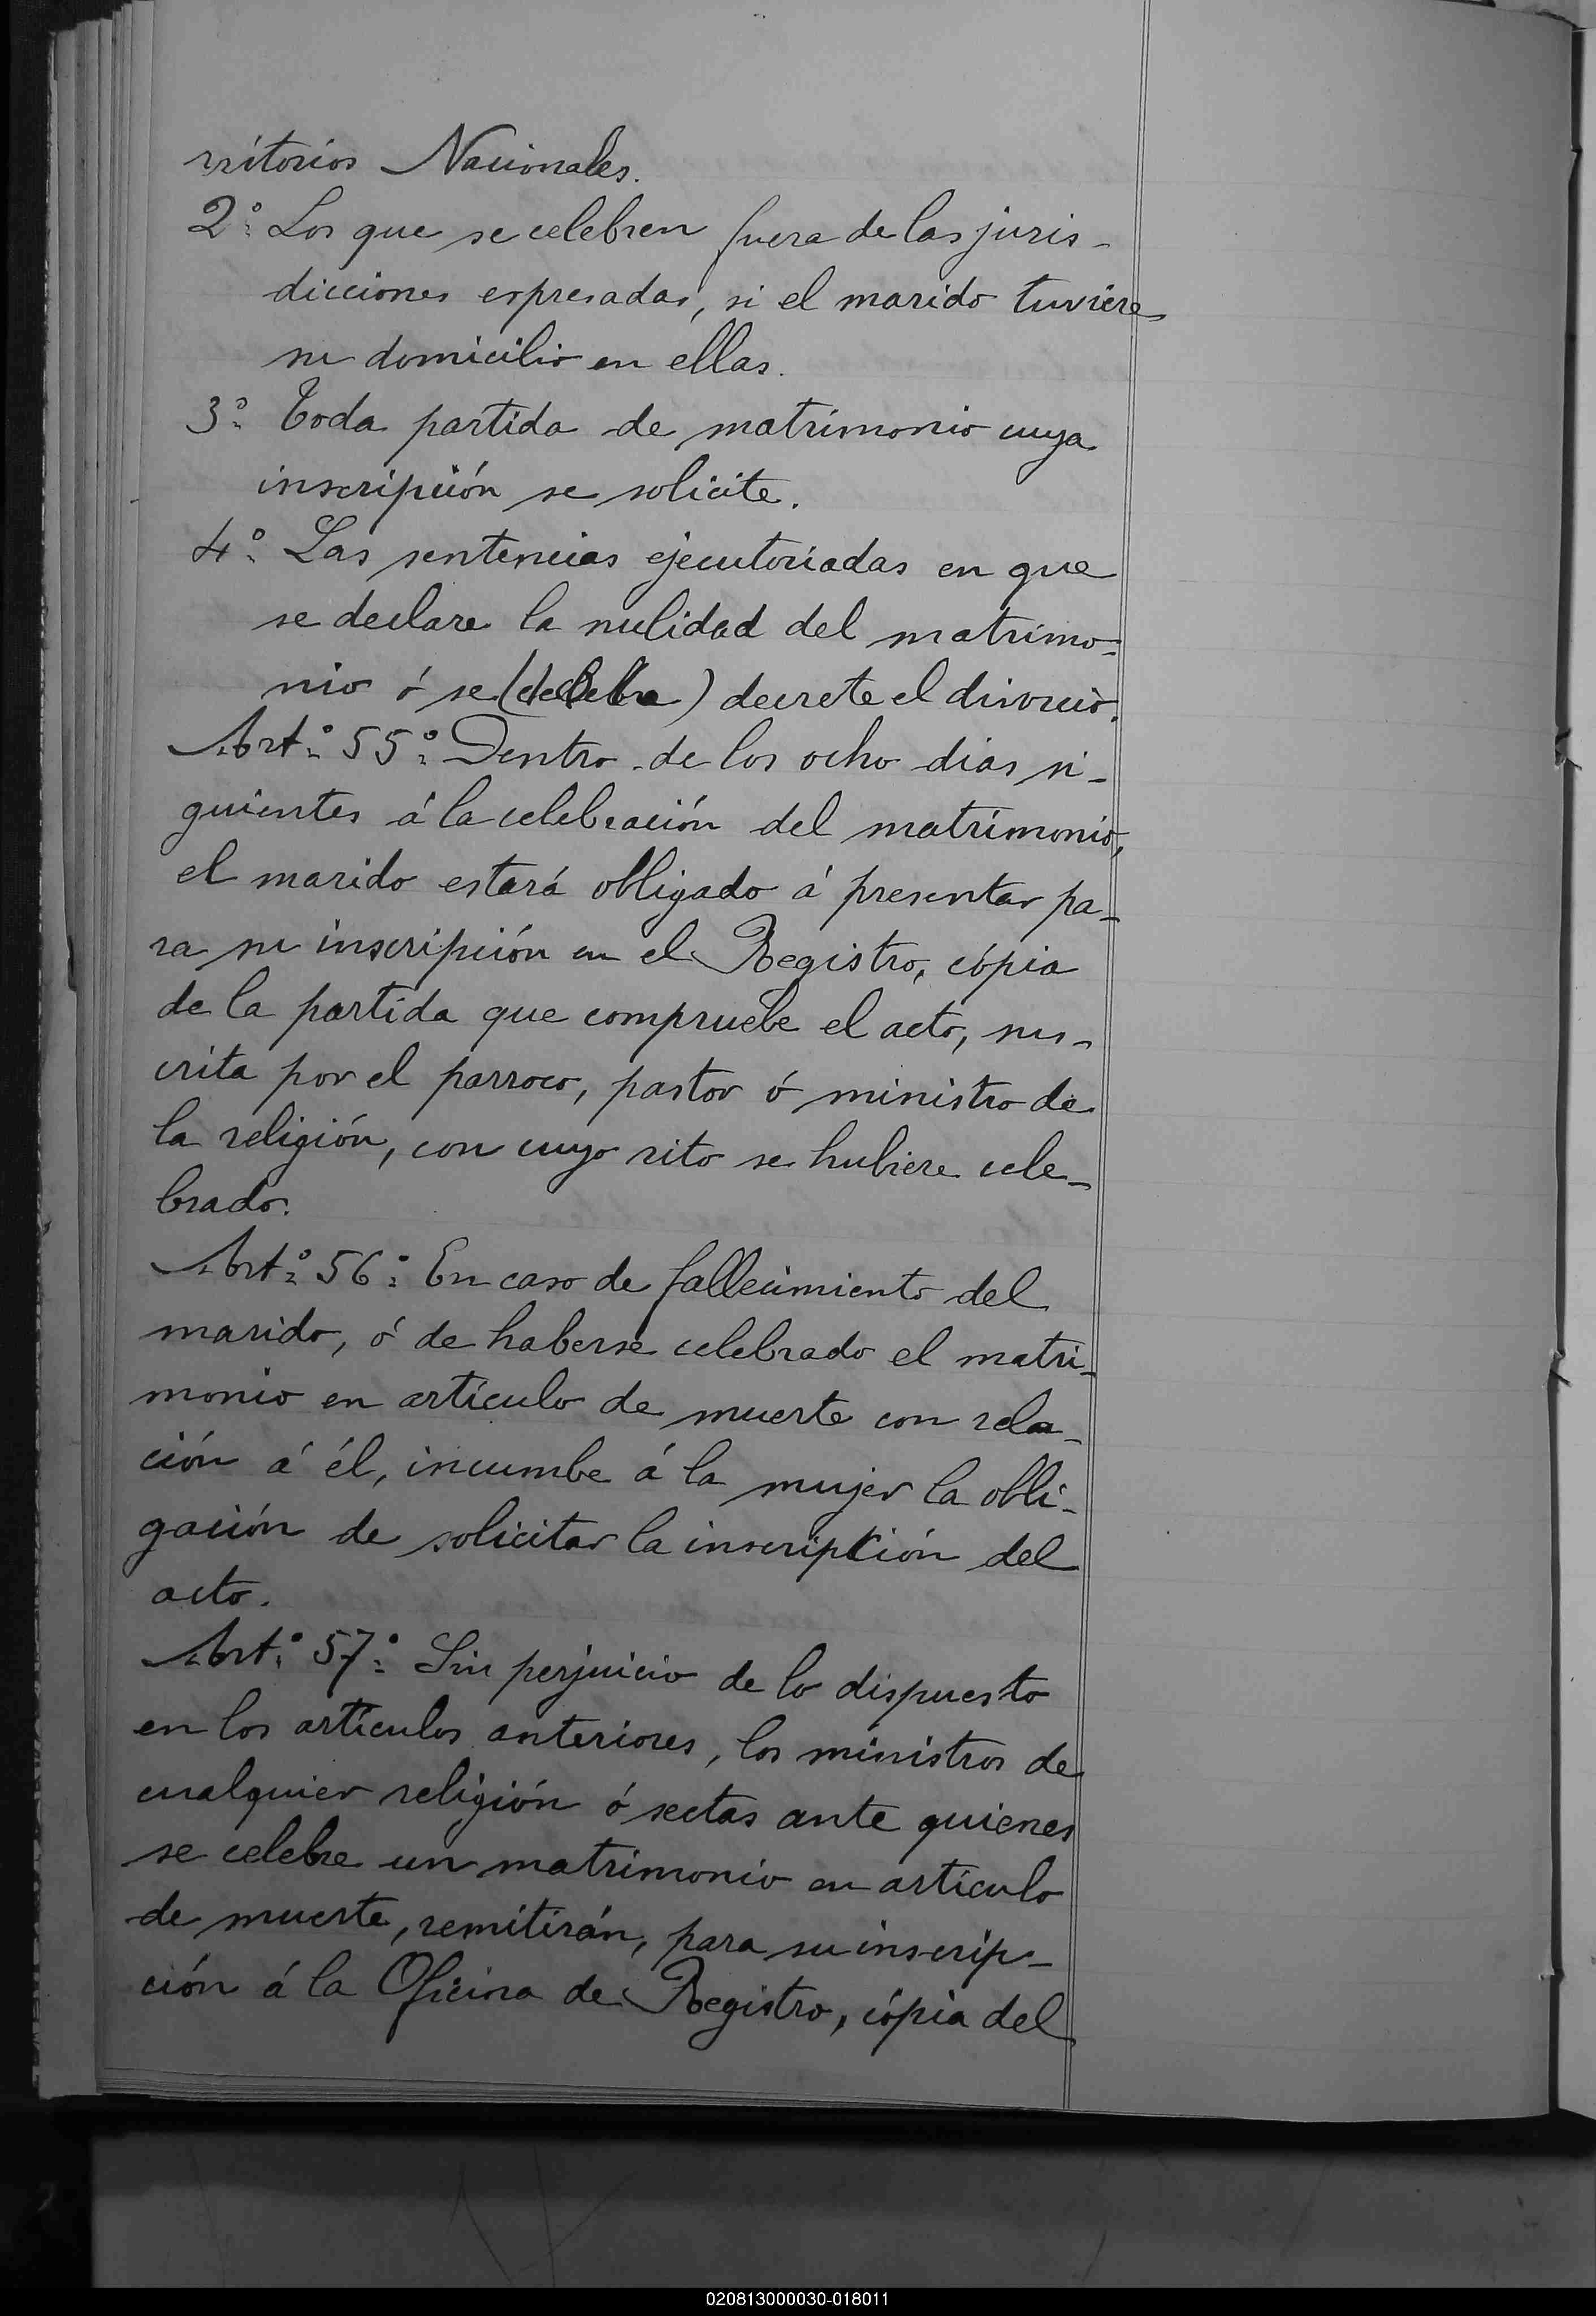 rritorios Nacionales.
2º Los que se celebren fuera de las juris-
dicciones espresadas, si el marido tuviere
su domicilio en ellas.
3º Toda partida de matrimonio cuya
inscripción se solicite.
4º Las sentencias ejecutoriadas en que
se declare la nulidad del matrimo=
nio ó se ( ) decrete el divorcio.
Artº 55º Dentro de los ocho dias si-
guientes á la celebración del matrimonio,
el marido estará obligado á presentar pa-
ra su inscripción en el Registro, cópia
de la partida que compruebe el acto, sus-
crita por el parroco, pastor ó ministro de
la religión, con cuyo rito se hubiere cele-
brado.
Artº 56º En caso de fallecimiento del
marido, ó de haberse celebrado el matri-
monio en artículo de muerte con rela-
ción á él, incumbe á la mujer la obli-
gación de solicitar la inscripción del
acto.
Artº 57º Sin perjuicio de lo dispuesto
en los artículos anteriores, los ministros de
cualquier religión ó sectas ante quienes
se celebre un matrimonio en artículo
de muerte, remitirán, para su inscrip-
ción á la Oficina de Registro, cópia del
020813000030-018011